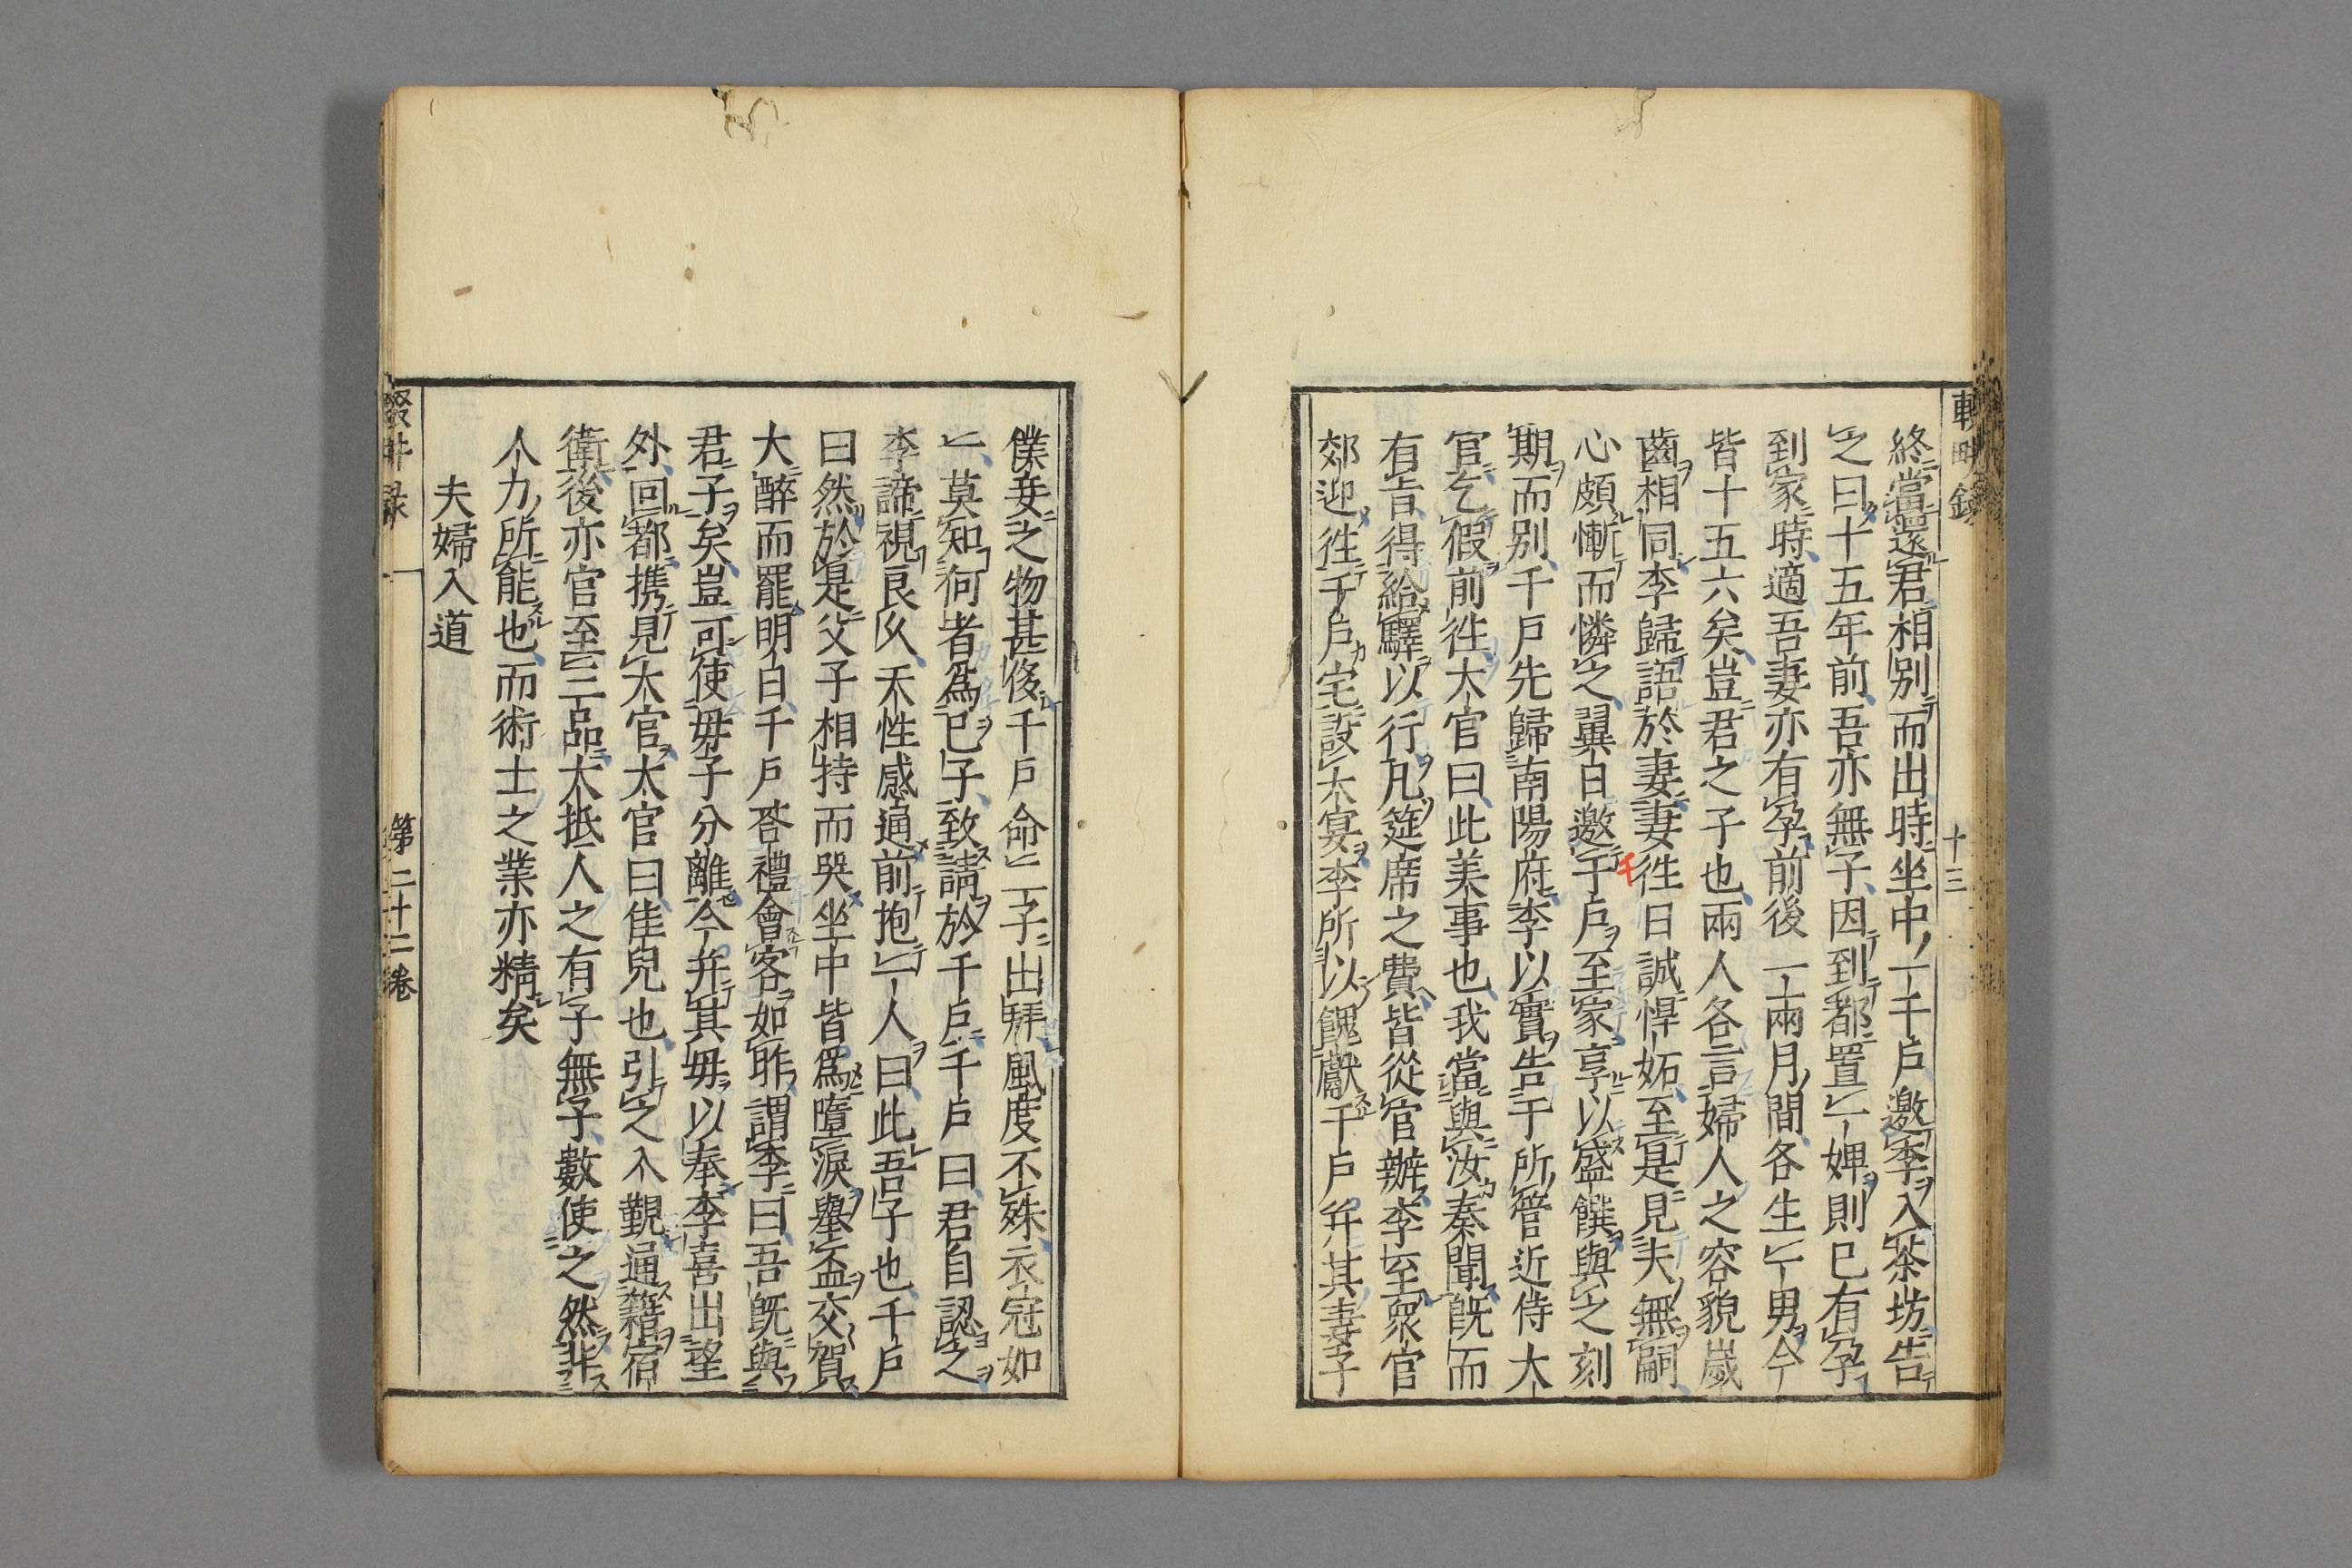 輟畊錄 十三
終當還君相別而出時坐中一千戶邀李入茶坊告
之曰十五年前吾亦無子因到都置一婢則已有孕
到家時適吾妻亦有孕前後一兩月間各生一男今
皆十五六矣豈君之子也兩人各言婦人之容貌歲
齒相同李歸語於妻妻徃日誠悍妬至是見夫無嗣
心頗慚而憐之翼日邀千戶至家享以盛饌與之刻
千
期而別千戶先歸南陽府李以實告于所管近侍大
官乞假前徃大官曰此美事也我當與汝奏聞既而
有旨得給驛以行凡筵席之費皆從官辦李至衆官
郊迎徃千戶宅設大宴李所以餽獻千戶并其妻子
僕妾之物甚侈千戶命二子出拜風度不殊衣冠如
一莫知何者爲已子致請於千戶千戶曰君自認之
李諦視良久天性感通前抱一人曰此吾子也千戶
曰然於是父子相持而哭坐中皆爲墮淚舉盃交賀
大醉而罷明日千戶荅禮會客如昨謂李曰吾既與
君子矣豈可使毋子分離今并其毋以奉李喜出望
外回都携見大官大官曰佳兒也引之入覲通籍宿
衛後亦官至三品大抵人之有子無子數使之然非
人力所能也而術士之業亦精矣
夫婦入道
輟畊录 第二十二卷